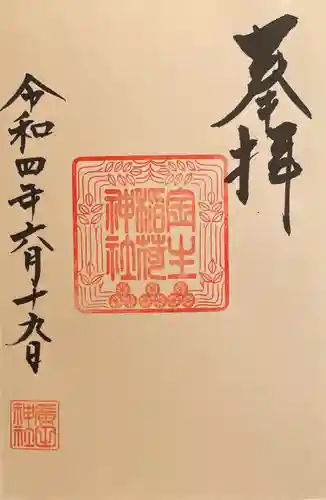 奉拝
金生
稲荷
神社
令和四年六月十九日
廣田
神社